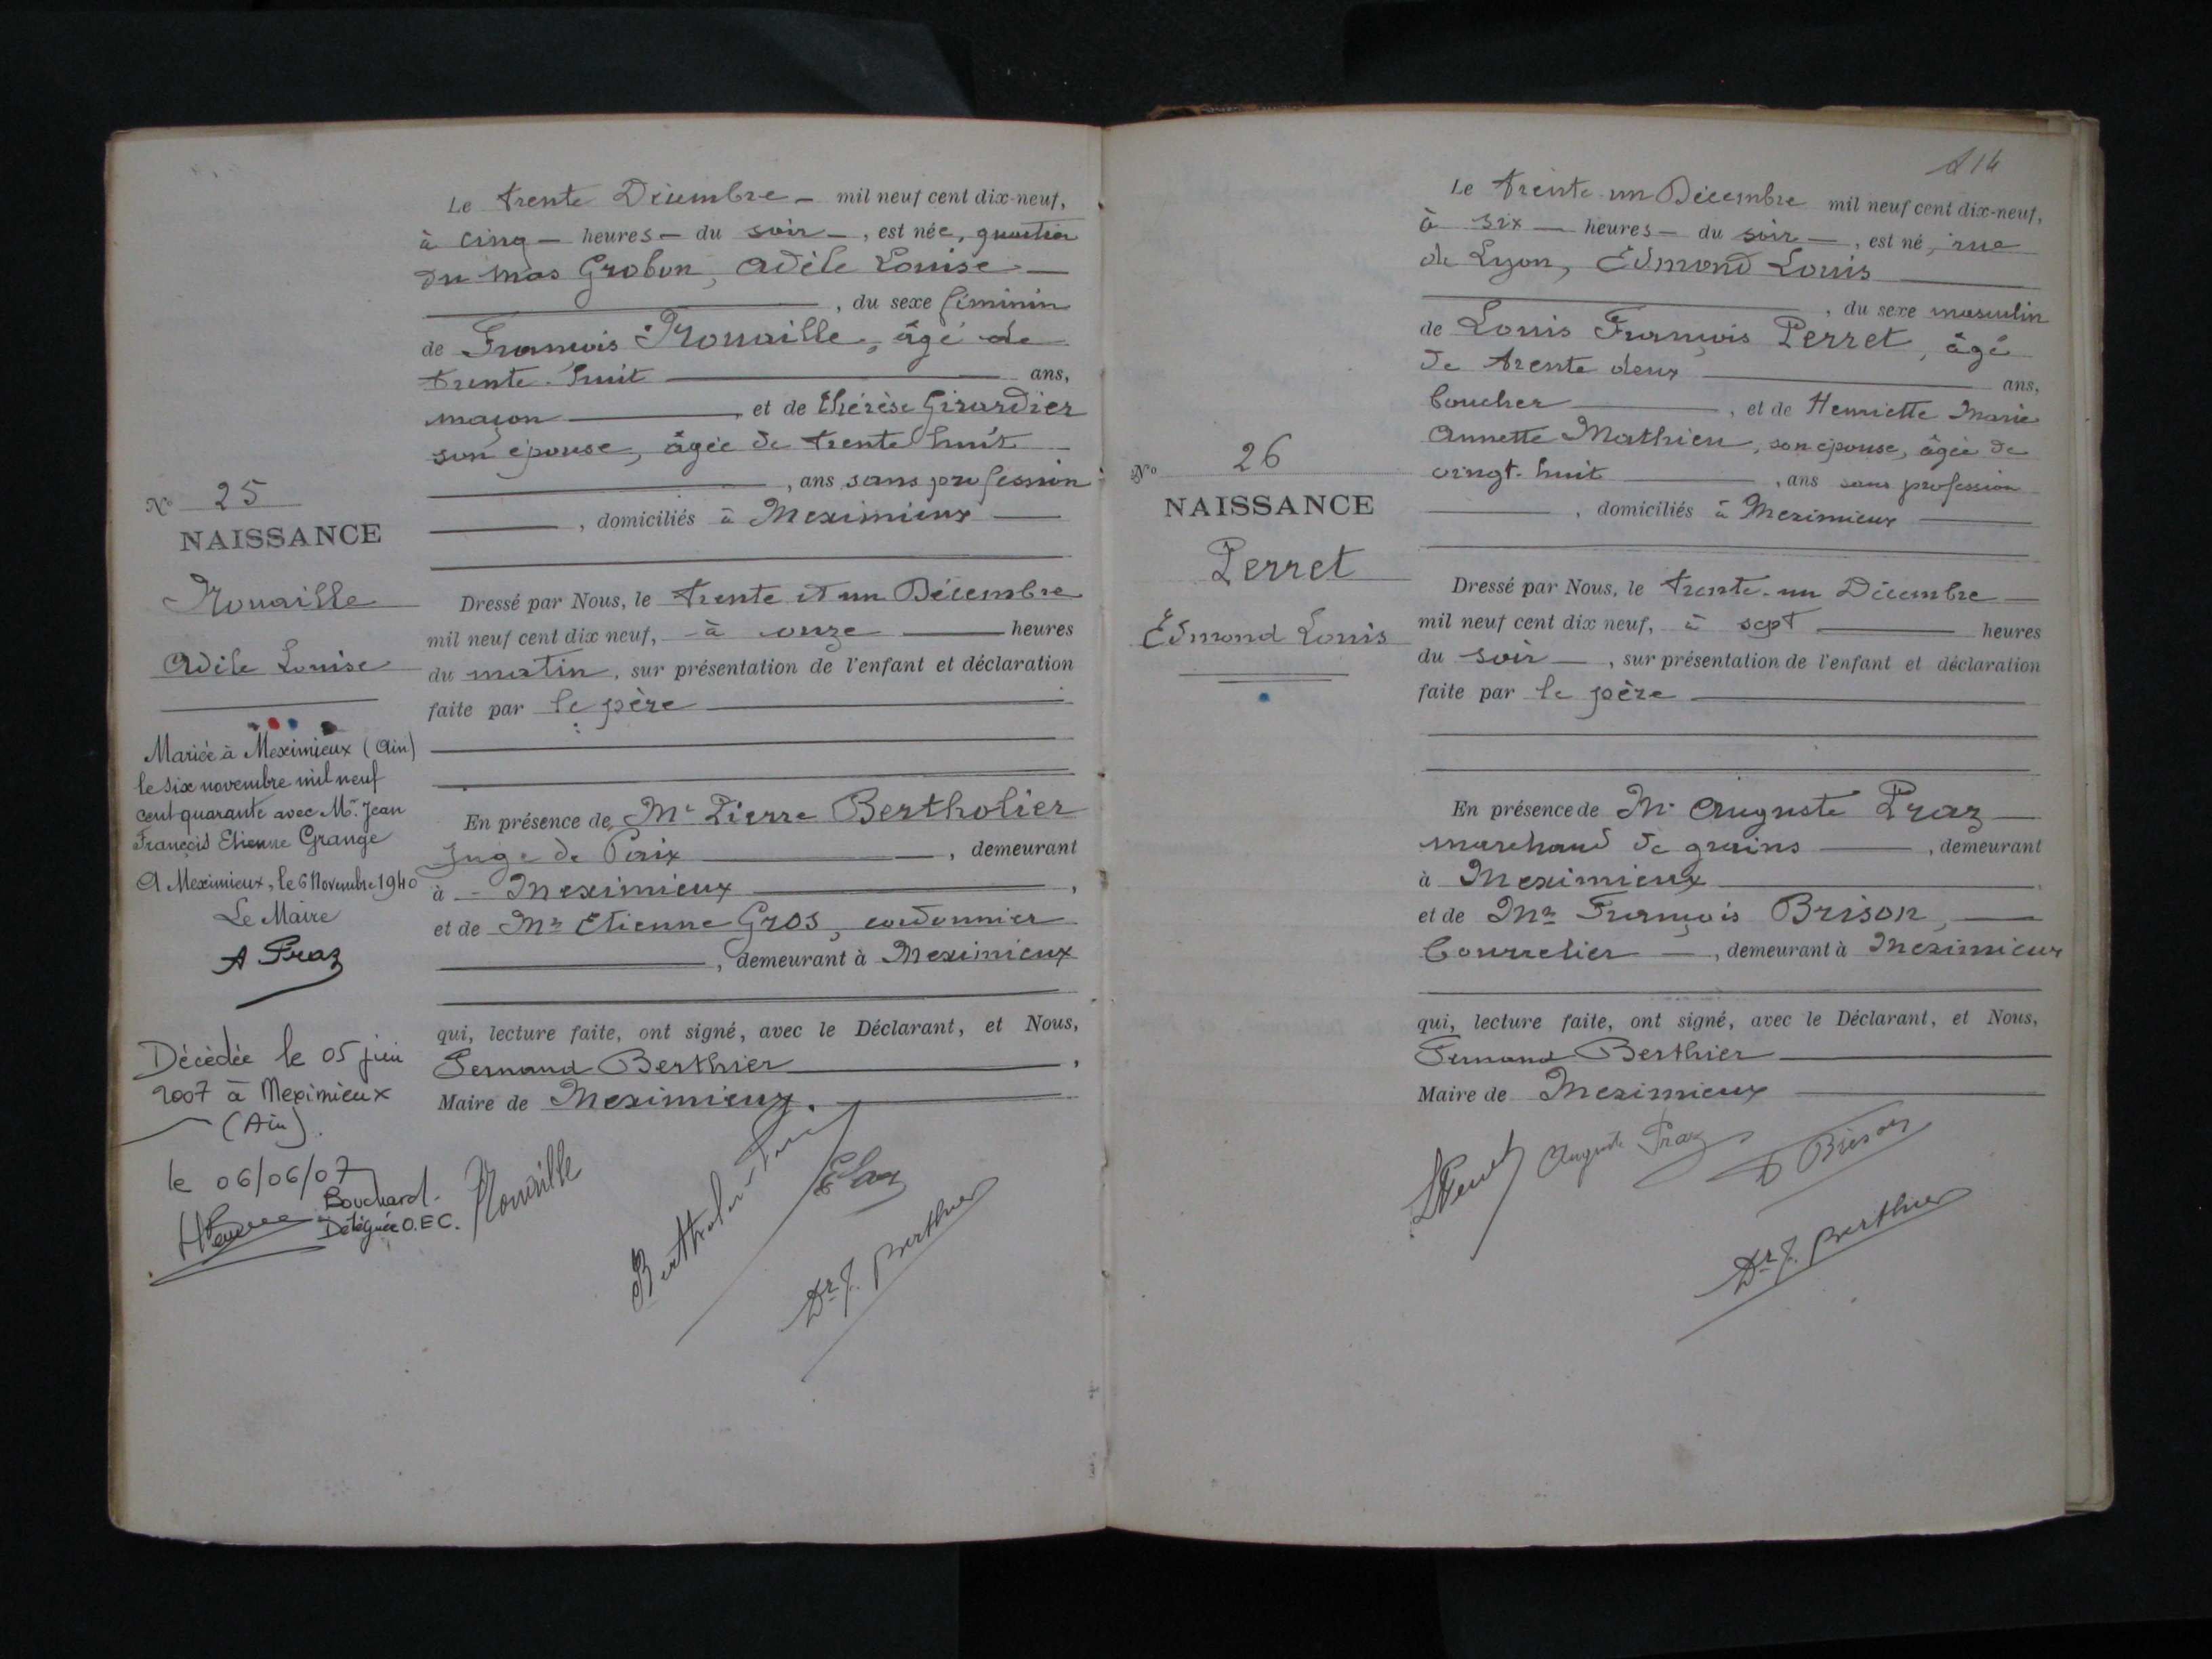 Le trente Décembre mil neuf cent dix-neuf,
à cinq heures du soir, est née, quartier
du mas Grobon, Adèle Louise
, du sexe féminin
de François Nouaille, âgé de
trente-huit ans,
maçon, et de Thérèse Girardier
son épouse, âgée de trente huit
, ans sans profession
, domiciliés à Meximieux
No 25
NAISSANCE
Nouaille
Adèle Louise
Dressé par Nous, le trente et un Décembre
mil neuf cent dix neuf, à onze heures
du matin, sur présentation de l'enfant et déclaration
faite par le père
En présence de Mr Pierre Bertholier
Juge de Paix, demeurant
à Meximieux,
et de Mr Etienne Gros, cordonnier
, demeurant à Meximieux
qui, lecture faite, ont signé, avec le Déclarant, et Nous,
Fernand Berthier,
Maire de Meximieux.
Mariée à Meximieux (Ain)
le six novembre mil neuf
cent quarante avec Mr. Jean
François Etienne Grange
A Meximieux, le 6 Novembre 1940
Le Maire
A Praz
Décédée le 05 juin
2007 à Meximieux
(Ain).
le 06/06/07
Bouchard.
Déléguée O.E.C.
Nouaille
Dr F. Berthier
114
Le trente-un Décembre mil neuf cent dix-neuf,
à six heures du soir, est né, rue
de Lyon, Edmond Louis
, du sexe masculin
de Louis François Perret, âgé
de trente deux ans,
boucher, et de Henriette Marie
Annette Mathieu, son épouse, âgée de
vingt-huit, ans sans profession
, domiciliés à Meximieux
No 26
NAISSANCE
Perret
Edmond Louis
Dressé par Nous, le trente-un Décembre
mil neuf cent dix neuf, à sept heures
du soir, sur présentation de l'enfant et déclaration
faite par le père
En présence de Mr Auguste Praz
marchand de grains, demeurant
à Meximieux
et de Mr François Brison,
bourrelier, demeurant à Meximieux
qui, lecture faite, ont signé, avec le Déclarant, et Nous,
Fernand Berthier
Maire de Meximieux
LPerret
Auguste Praz
Brison
Dr F. Berthier